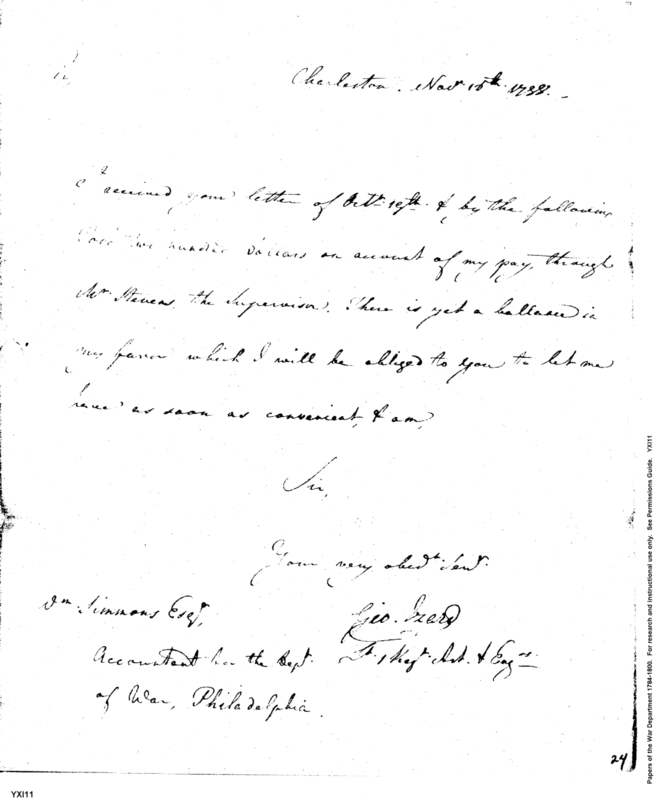 Sir,
Charleston. Novr. 15th. 1798. -
I received your letter of Octr. 19th. & by the following
Post two hundred Dollars on account of my pay, through
Mr. Stevens, the Supervisor. There is yet a ballance in
my favor which I will be obliged to you to let me
have as soon as convenient, & am,
Sir,
Your very obedt. Servt.
Geo. Izard
1 Regt. Art. & Engrs.
Wm. Simmons Esqr.
Accountant for the Dept.
of War, Philadelphia.
24
YXI11
Papers of the War Department 1784-1800. For research and instructional use only. See Permissions Guide. YXI11